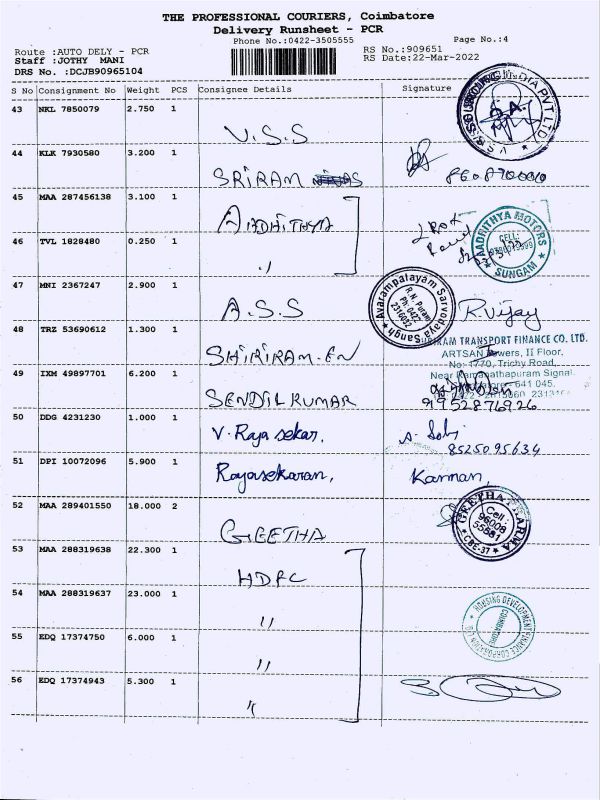 THE PROFESSIONAL COURIERS, Coimbatore
Delivery Runsheet - PCR
Phone No.:0422-3505555
Page No.:4
Route :AUTO DELY - PCR
RS No.:909651
Staff :JOTHY MANI
RS Date:22-Mar-2022
DRS No. :DCJB90965104
S No Consignment No Weight PCS Consignee Details Signature
43 NKL 7850079 2.750 1
V.S.S
44 KLK 7930580 3.200 1
SRIRAM
45 MAA 287456138 3.100 1
AADHITHYA
AADHITHYA MOTORS
CELL:
SUNGAM
46 TVL 1828480 0.250 1
"
47 MNI 2367247 2.900 1
A.S.S
Avarampalayam Sarvodaya Sangh
R.N. Puram
Ph: 0422
2316032
R.Vijay
48 TRZ 53690612 1.300 1
SHIRIRAM-EN
SHRIRAM TRANSPORT FINANCE CO. LTD.
ARTSAN Towers, II Floor,
No: 1770, Trichy Road,
Near Ramanathapuram Signal
641 045.
49 IXM 49897701 6.200 1
SENDIL KUMAR
9195287 6926
50 DDG 4231230 1.000 1
V. Raja sekar.
8525095634
51 DPI 10072096 5.900 1
Rajasekaran,
Kannan,
52 MAA 289401550 18.000 2
GEETHA
GEETHA PHARMA
Cell:
96008
55681
CBE-37
53 MAA 288319638 22.300 1
HDFC
54 MAA 288319637 23.000 1
"
HOUSING DEVELOPMENT FINANCE CORPORATION LTD
COIMBATORE
55 EDQ 17374750 6.000 1
"
56 EDQ 17374943 5.300 1
"